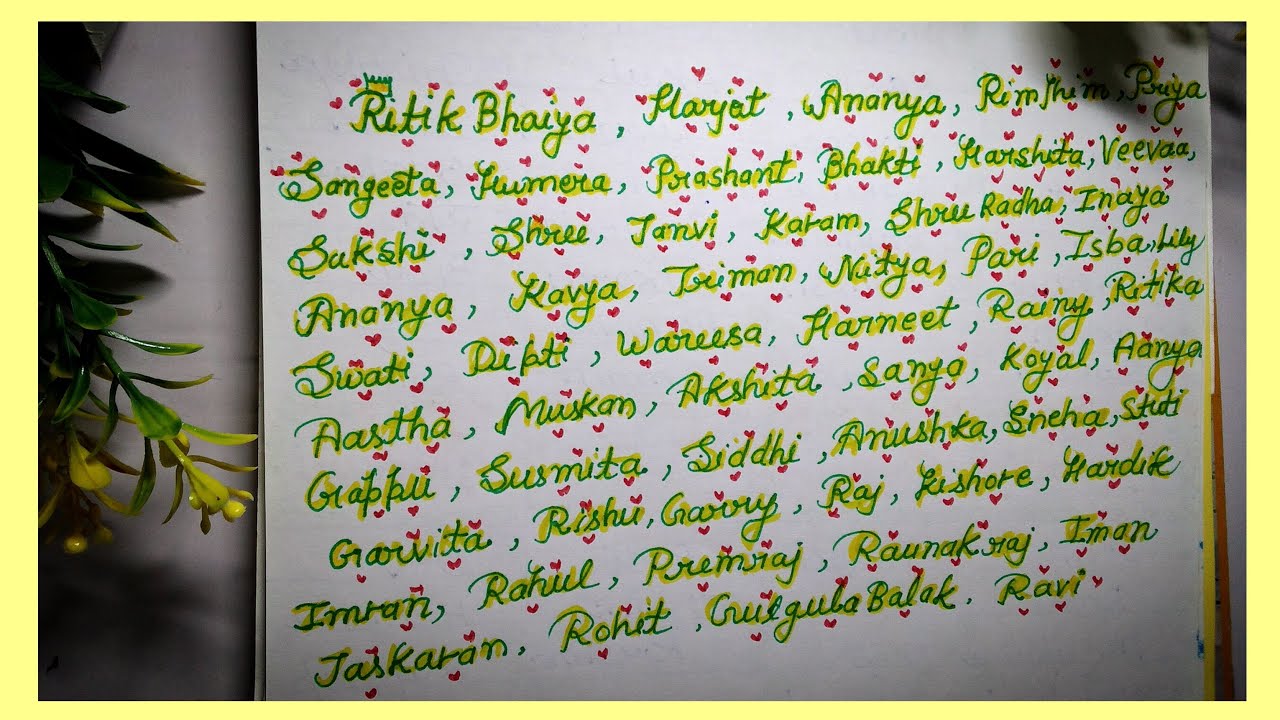 Ritik Bhaiya, Harjot, Ananya, Rimjhim, Priya
Sangeeta, Humera, Prashant, Bhakti, Harshita, Veevaa,
Sakshi, Shree, Tanvi, Karam, Shree Radha, Inaya
Ananya, Kavya, Triman, Nitya, Pari, Isba, Lily
Swati, Dipti, Wareesa, Harneet, Rainy, Ritika
Aastha, Muskan, Akshita, Sanya, Koyal, Aanya
Gappu, Susmita, Siddhi, Anushka, Sneha, Stuti
Garvita, Rishu, Garry, Raj, Kishore, Hardik
Imran, Rahul, Premraj, Raunak raj, Iman
Jaskaran, Rohit, Gulgula Balak. Ravi